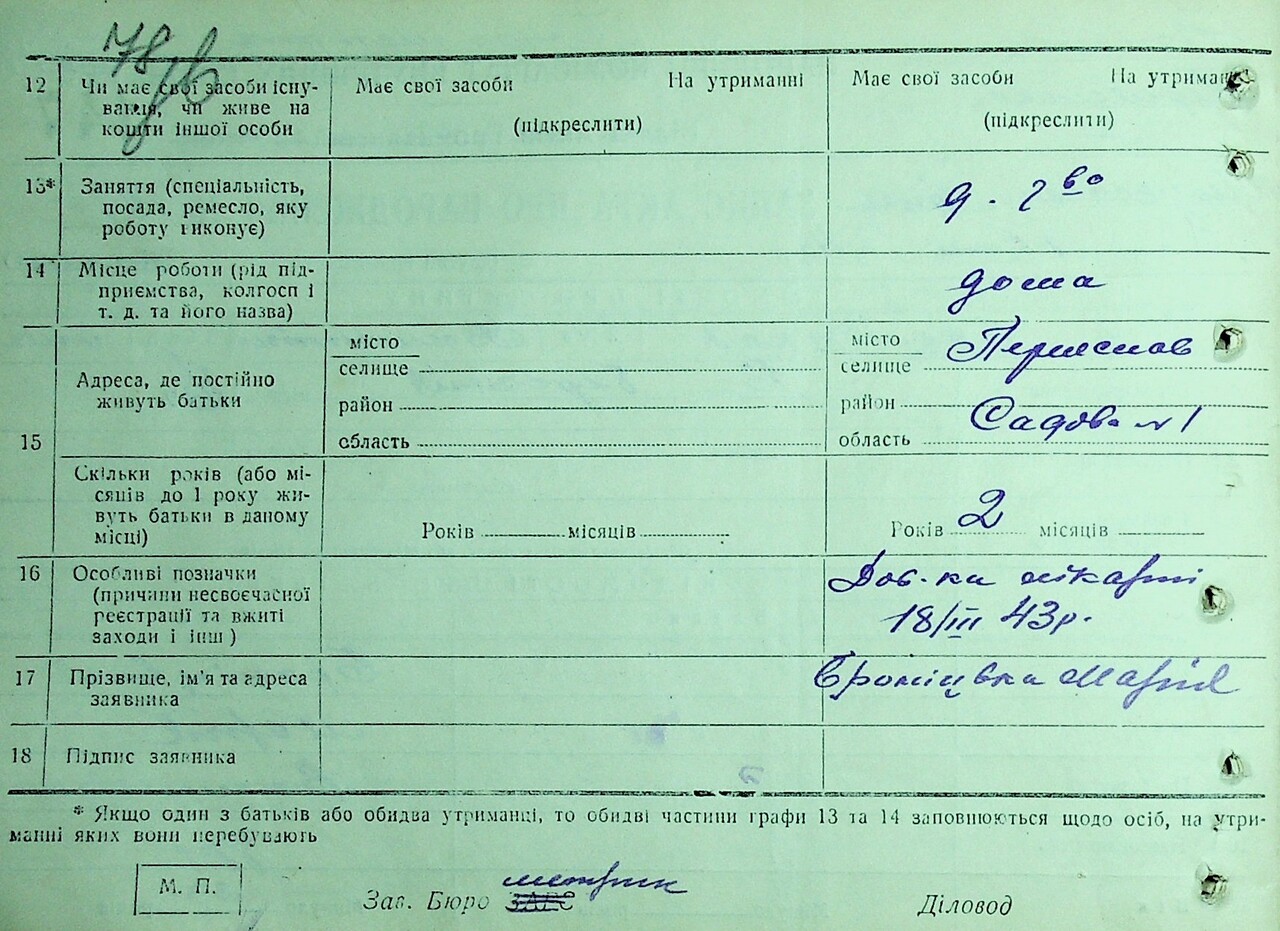 78
12 Чи має свої засоби існу- Має свої засоби На утриманні Має свої засоби На утриманні
вання, чи живе на
кошти іншої особи (підкреслити) (підкреслити)
13* Заняття (спеціальність, д. г во
посада, ремесло, яку
роботу виконує)
14 Місце роботи (рід під- дома
приємства, колгосп і
т. д. та його назва)
15 Адреса, де постійно живуть батьки
місто місто
селище селище
район район
область область Садова №1
Скільки років (або мі-
сяців до 1 року жи-
вуть батьки в даному
місці) Років місяців Років 2 місяців
16 Особливі позначки Дов-ка лікарні
(причини несвоєчасної 18/III 43р.
реєстрації та вжиті
заходи і інш)
17 Прізвище, ім'я та адреса Марія
заявника
18 Підпис заявника
* Якщо один з батьків або обидва утриманці, то обидві частини графи 13 та 14 заповнюються щодо осіб, на утри-
манні яких вони перебувають
М. П.
метрик
Зав. Бюро ЗАГС Діловод